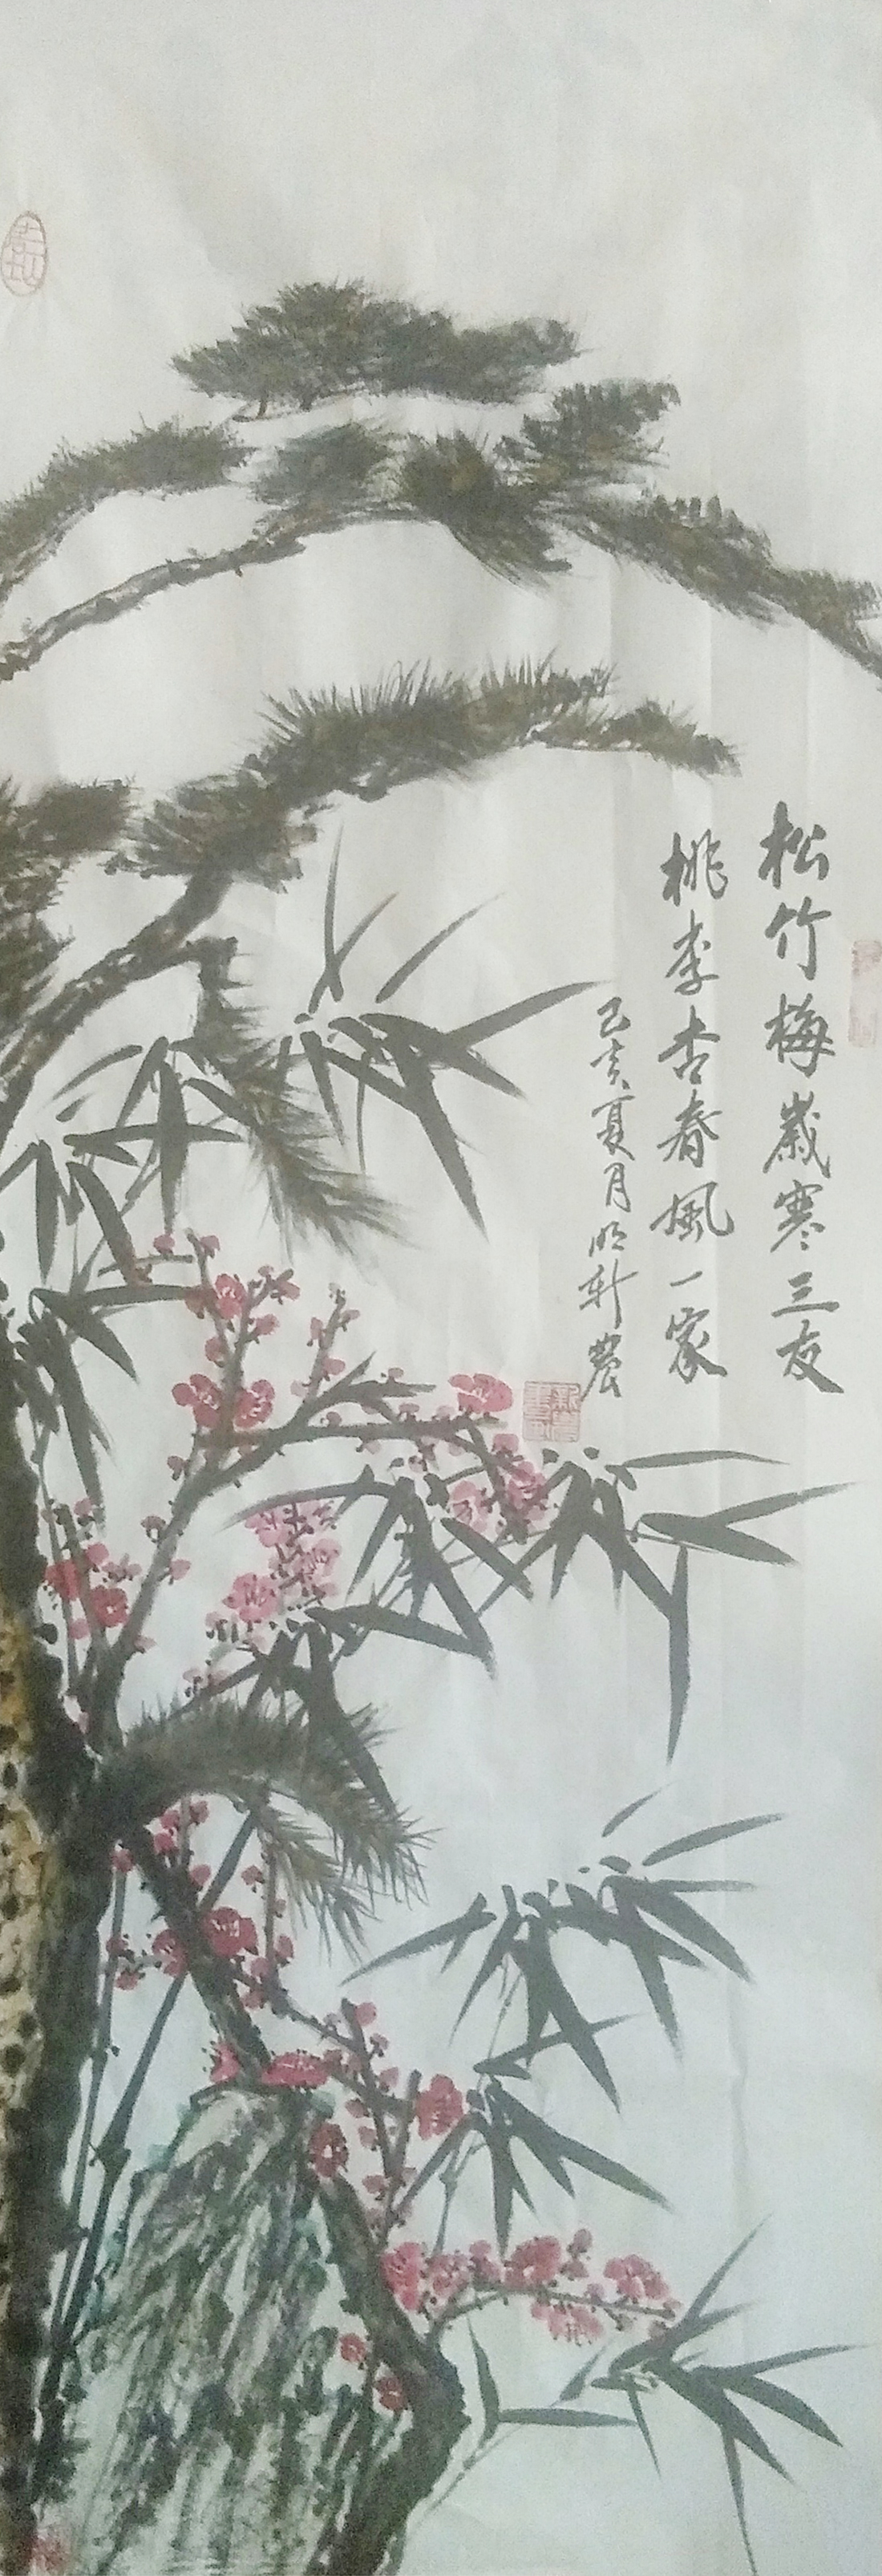 松竹梅歲寒三友
桃李杏春風一家
己亥夏月明轩農